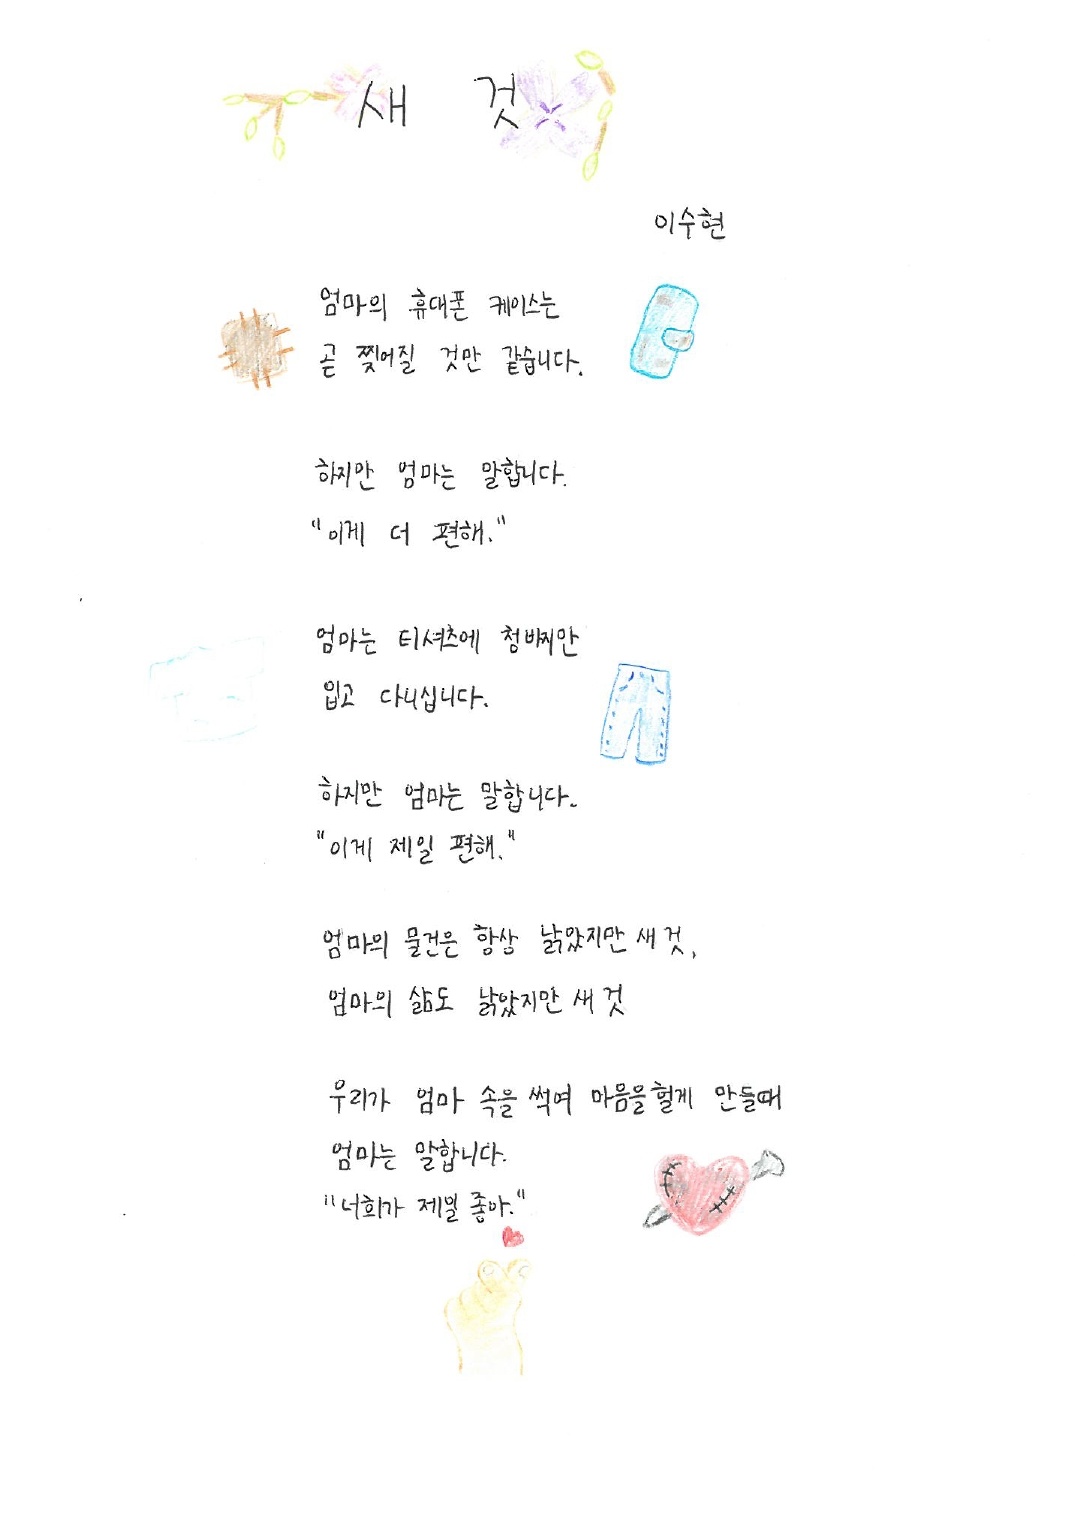 새 것
이수현
엄마의 휴대폰 케이스는
곧 찢어질 것만 같습니다.
하지만 엄마는 말합니다.
"이게 더 편해."
엄마는 티셔츠에 청바지만
입고 다니십니다.
하지만 엄마는 말합니다.
"이게 제일 편해."
엄마의 물건은 항상 낡았지만 새 것,
엄마의 삶도 낡았지만 새 것
우리가 엄마 속을 썩여 마음을 헐게 만들때
엄마는 말합니다.
"너희가 제일 좋아."